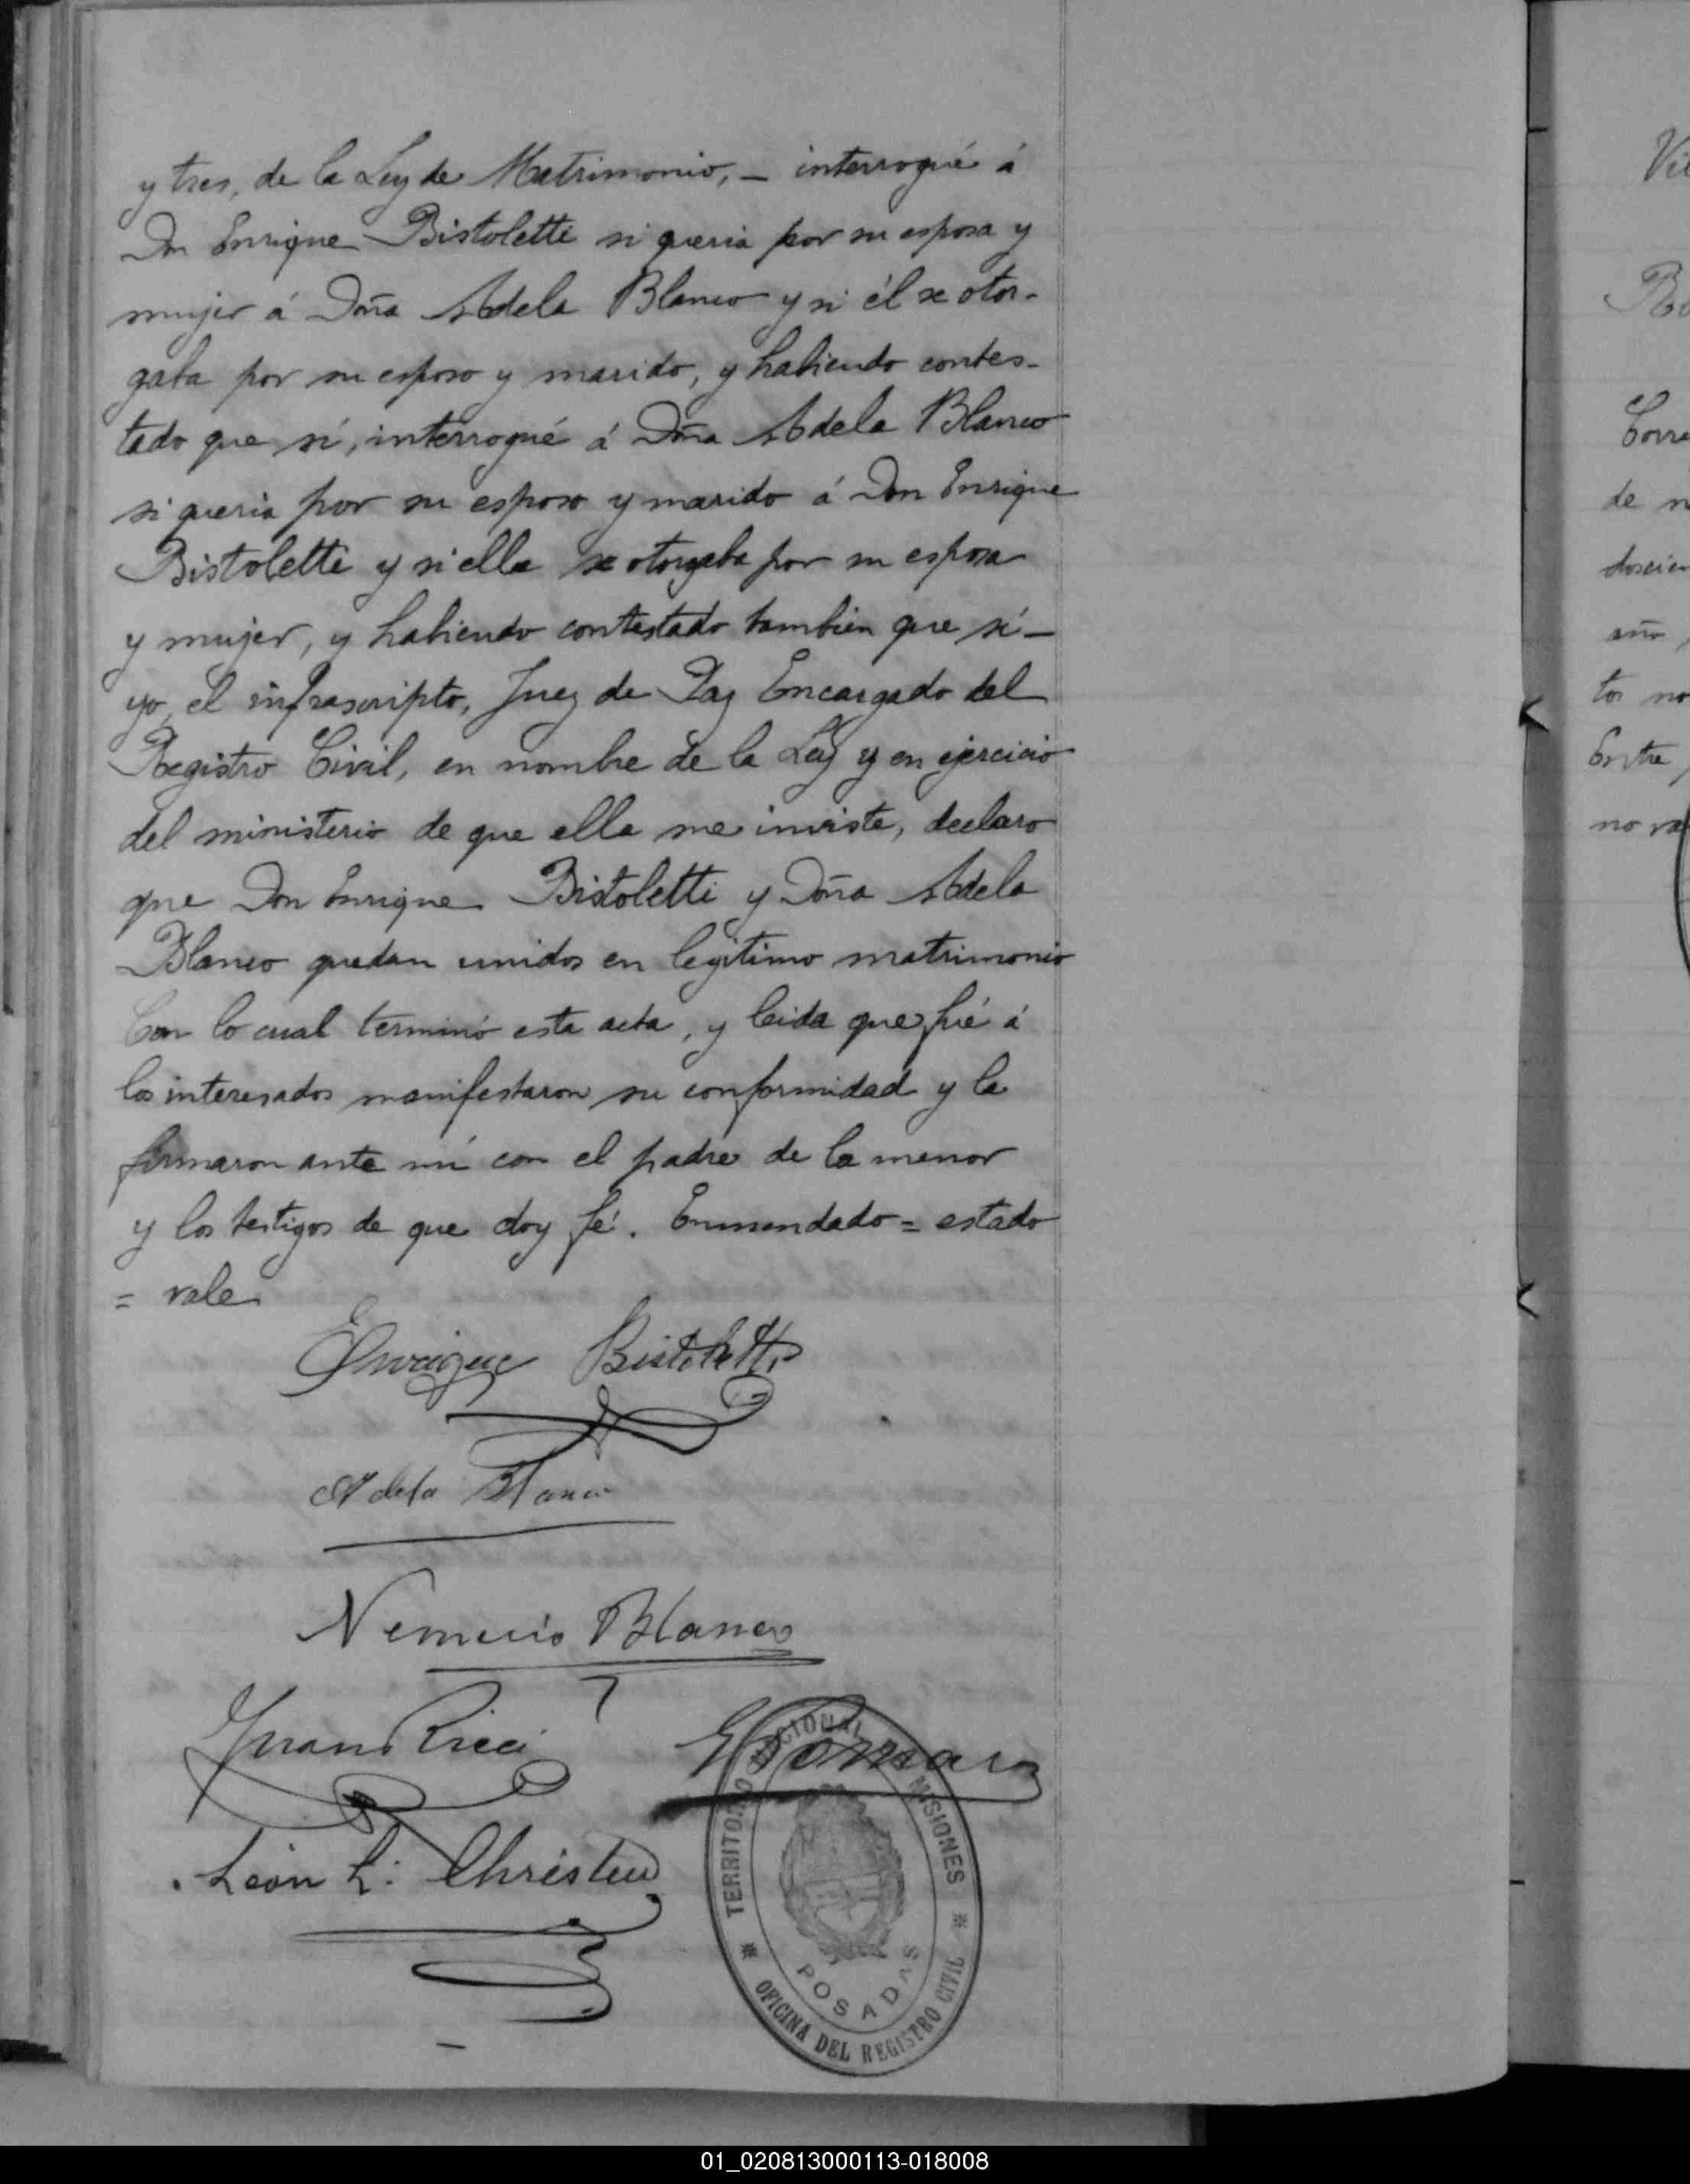 y tres, de la Ley de Matrimonio, — interrogué á
Don Enrique Bistoletti si queria por su esposa y
mujer á Doña Adela Blanco y si él se otor-
gaba por su esposo y marido, y habiendo contes-
tado que sí, interrogué á Doña Adela Blanco
si queria por su esposo y marido á Don Enrique
Bistoletti y si ella se otorgaba por su esposa
y mujer, y habiendo contestado tambien que sí —
yo, el infrascripto, Juez de Paz Encargado del
Registro Civil, en nombre de la Ley y en ejercicio
del ministerio de que ella me inviste, declaro
que Don Enrique Bistoletti y Doña Adela
Blanco quedan unidos en legítimo matrimonio
Con lo cual terminó esta acta, y leida que fué á
los interesados manifestaron su conformidad y la
firmaron ante mí con el padre de la menor
y los testigos de que doy fé. Enmendado = estado
= vale
Enrique Bistoletti
Adela Blanco
Nemecio Blanco
Juan Ricci
León L. Christen
TERRITORIO NACIONAL MISIONES
POSADAS
OFICINA DEL REGISTRO CIVIL
de
año
Entre
01_020813000113-018008